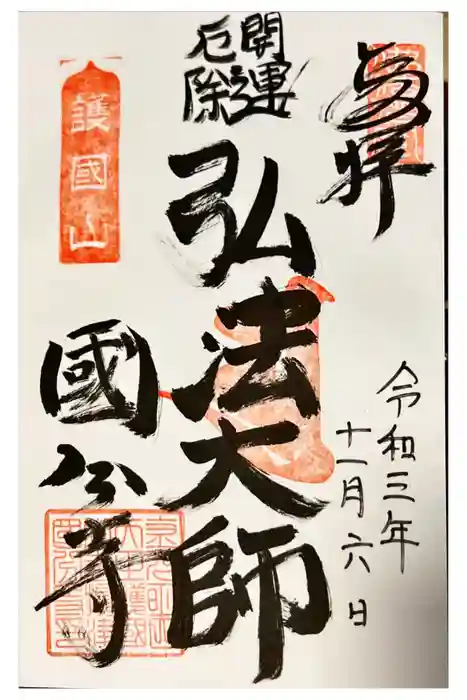 奉拝
令和三年
十一月六日
開運
厄除
弘法大師
護國山
國分寺